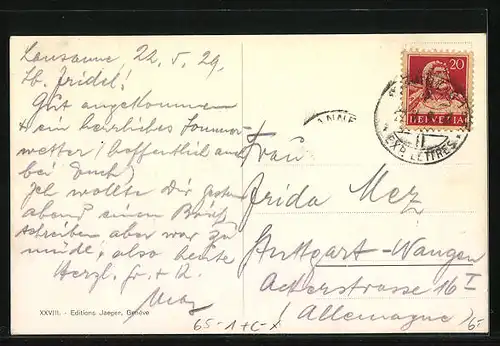 Lausanne, 22. 5. 29.
Lb. Fridel!
Gut angekommen
+ ein herrliches Sommer-
wetter! (hoffentlich auch
bei Euch)
Ich wollte Dir gestern
abend einen Brief
schreiben aber war zu
müde, also heute
Herzl. Gr. +
XXVIII. - Editions Jaeger, Genève
65-1+C-X
20
HELVETIA
EXP. LETTRES
Frau
Frida Mez
Stuttgart-Wangen
Ackerstrasse 16 I
Allemagne